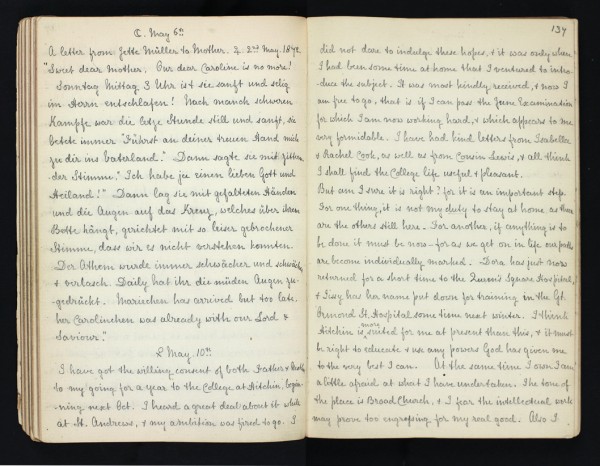 May 6th
A letter from Jette Müller to Mother. 2nd May. 1872.
"Sweet dear Mother. Our dear Caroline is no more!
Sonntag Mittag 3 Uhr ist sie sanft und selig
im Herrn entschlafen! Nach manch schweren
Kampfe war die letze Stunde still und sanft, sie
betete immer "Führst an deiner treuen Hand mich
zu dir ins Vaterland." Dann sagte sie mit zittern-
der Stimme." Ich habe ja einen lieben Gott und
Heiland!" Dann lag sie mit gefalteten Händen
und die Augen auf das Kreuz, welches über ihrem
Bette hängt, gerichtet mit so leiser gebrochener
Stimme, dass wir es nicht verstehen konnten.
Der Athem wurde immer schwächer und schwächer
+ verlosch. Daily hat ihr die müden Augen zu-
gedrückt. Mariechen has arrived but too late.
her Carolinchen was already with our Lord &
Saviour."
May. 10th
I have got the willing consent of both Father &
to my going for a year to the College at Hitchin, begin-
ning next Oct. I heard a great deal about it while
at St. Andrews, & my ambition was fired to go. I
137
did not dare to indulge these hopes, & it was only when
I had been some time at home that I ventured to intro-
duce the subject. It was most kindly received, & now I
am free to go, that is if I can pass the June Examination
for which I am now working hard, & which appears to me
very formidable. I have had kind letters from Isabella
& Rachel Cook, as well as from Cousin Lewis, & all think
I shall find the College life useful & pleasant.
But am I sure it is right? for it is an important step.
For one thing, it is not my duty to stay at home as there
are the others still here. For another, if anything is to
be done it must be now - for as we get on in life our paths
are become individually marked. Dora has just now
returned for a short time to the Queen's Square Hospital,
& Sissy has her name put down for training in the Gt.
Ormond St. Hospital some time next winter. I think
Hitchin is more suited for me at present than this, & it must
be right to educate & use any powers God has given me
to the very best I can. At the same time I own I am
a little afraid at what I have undertaken. The tone of
the place is Broad Church, & I fear the intellectual work
may prove too engrossing for my real good. Also I